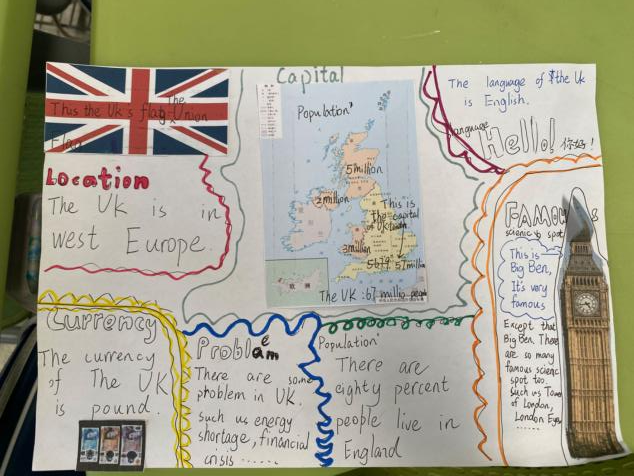 This the Uk's flag The Union
Flag
Location
The UK is in
west Europe.
Capital
Population
5 million
2 million
This is
the capital
of UK
3 million
57 million
The UK : 67 million people
The language of the Uk
is English.
language
Hello! 你好!
FAMOUS
scenic spot
This is
Big Ben,
It's very
famous
Except that
Big Ben, There
are so many
famous scienic
spot too.
such us Tower
of London,
London Eye
Currency
The currency
of The UK
is pound.
Problem
There are some
problem in UK.
such us energy
shortage, financial
crisis ......
Population
There are
eighty percent
people live in
England